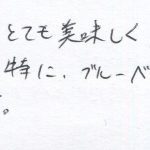 とても美味しく
特に、ブルーベ
。